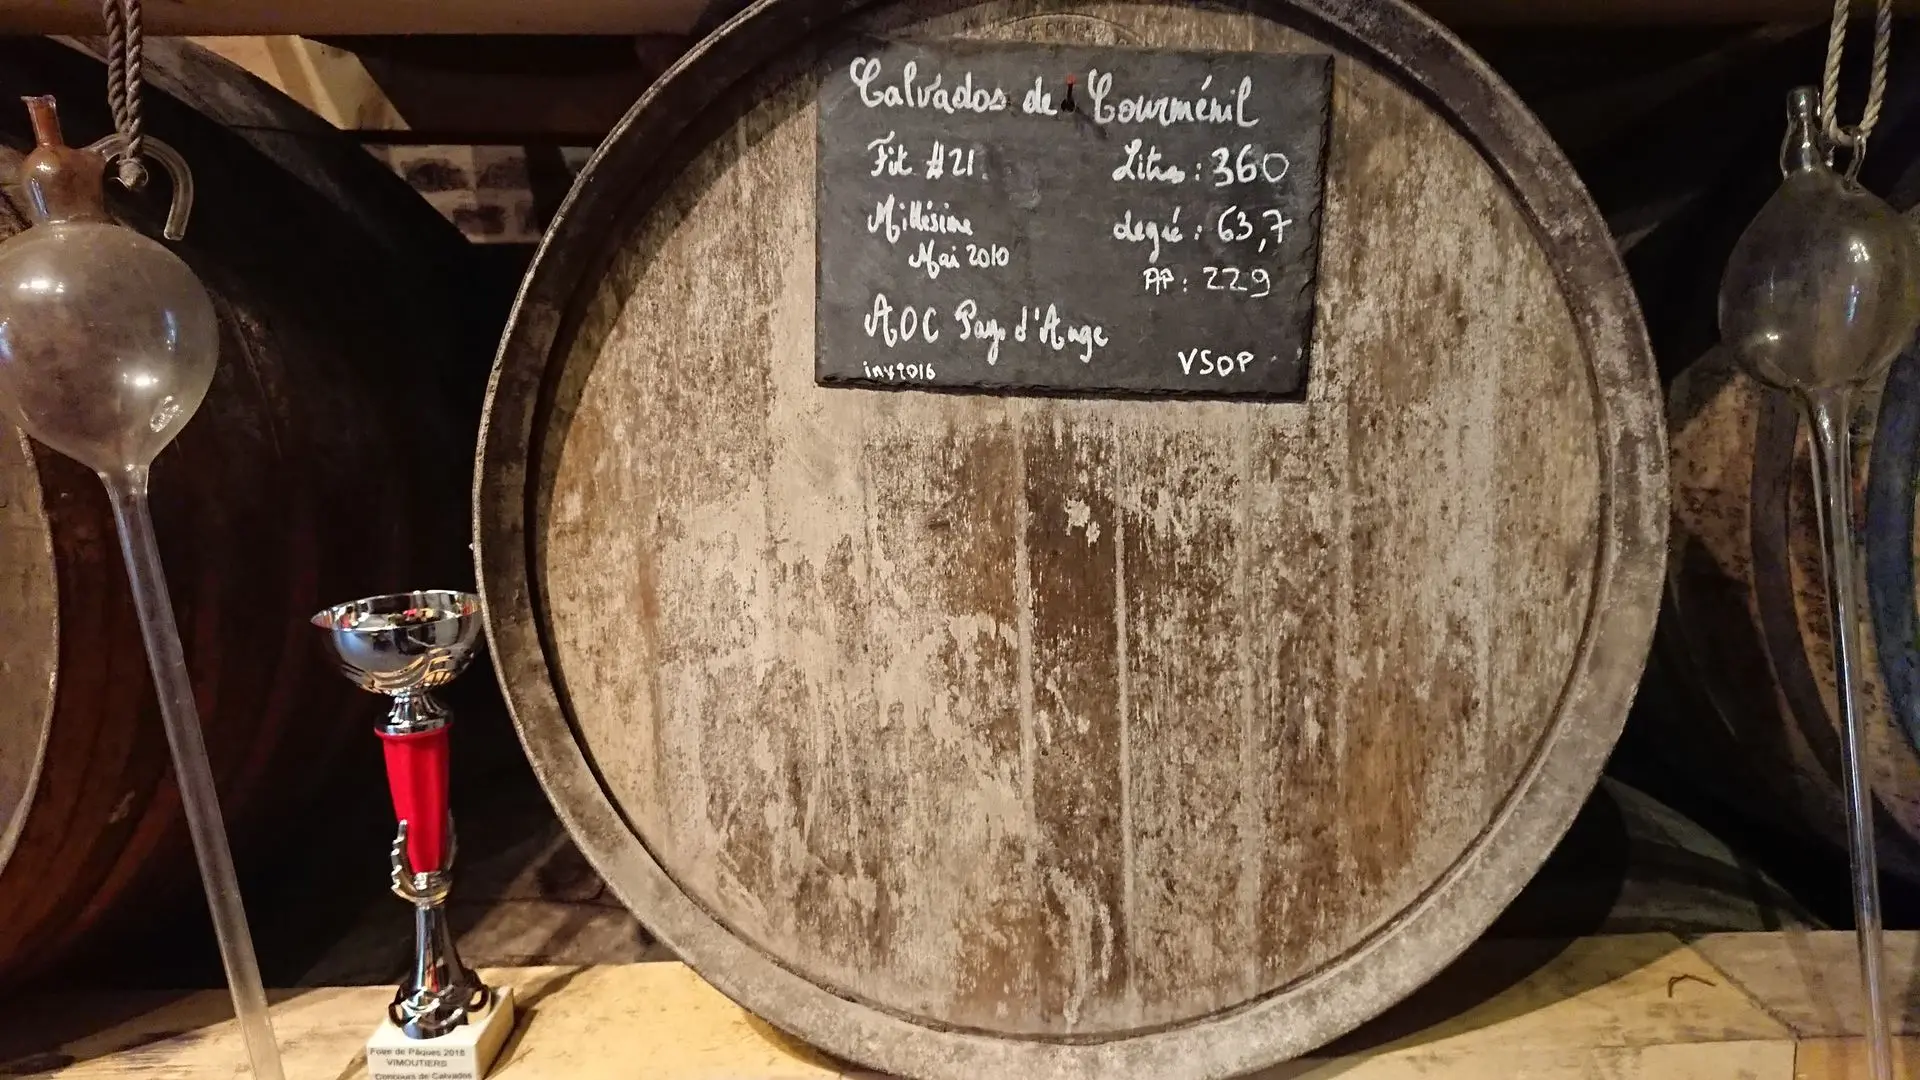 Calvados de Courménil
Fût #21. Litres : 360
Millésime degré : 63,7
Mai 2010 AP : 229
AOC Pays d'Auge
inv 2016 VSOP
Foire de Pâques 2018
VIMOUTIERS
Concours de Calvados